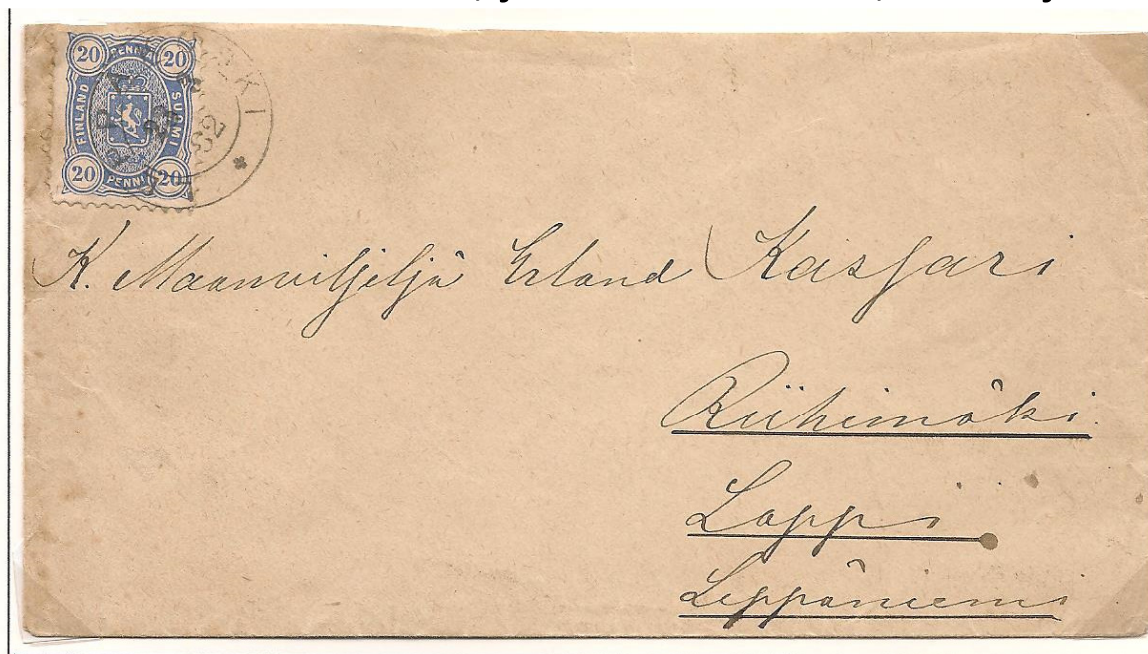 20 PENNIÄ 20
FINLAND SUOMI
20 PENNIÄ 20
K. Maanviljeljä Erland Kasjari
Riihimäki.
Loppi
Leppäniemi